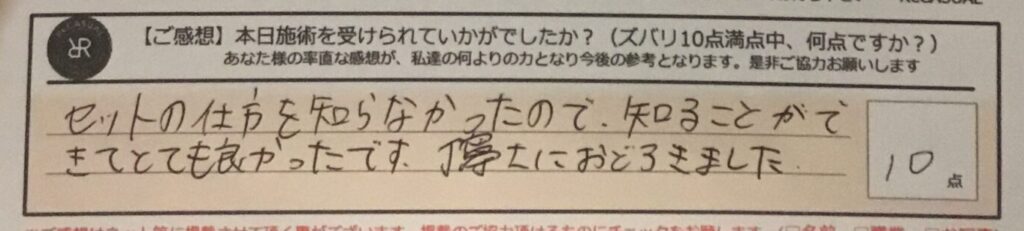 RR
【ご感想】本日施術を受けられていかがでしたか？（ズバリ10点満点中、何点ですか？）
あなた様の率直な感想が、私達の何よりの力となり今後の参考となります。是非ご協力お願いします
セットの仕方を知らなかったので、知ることがで
きてとても良かったです。におどろきました
10点